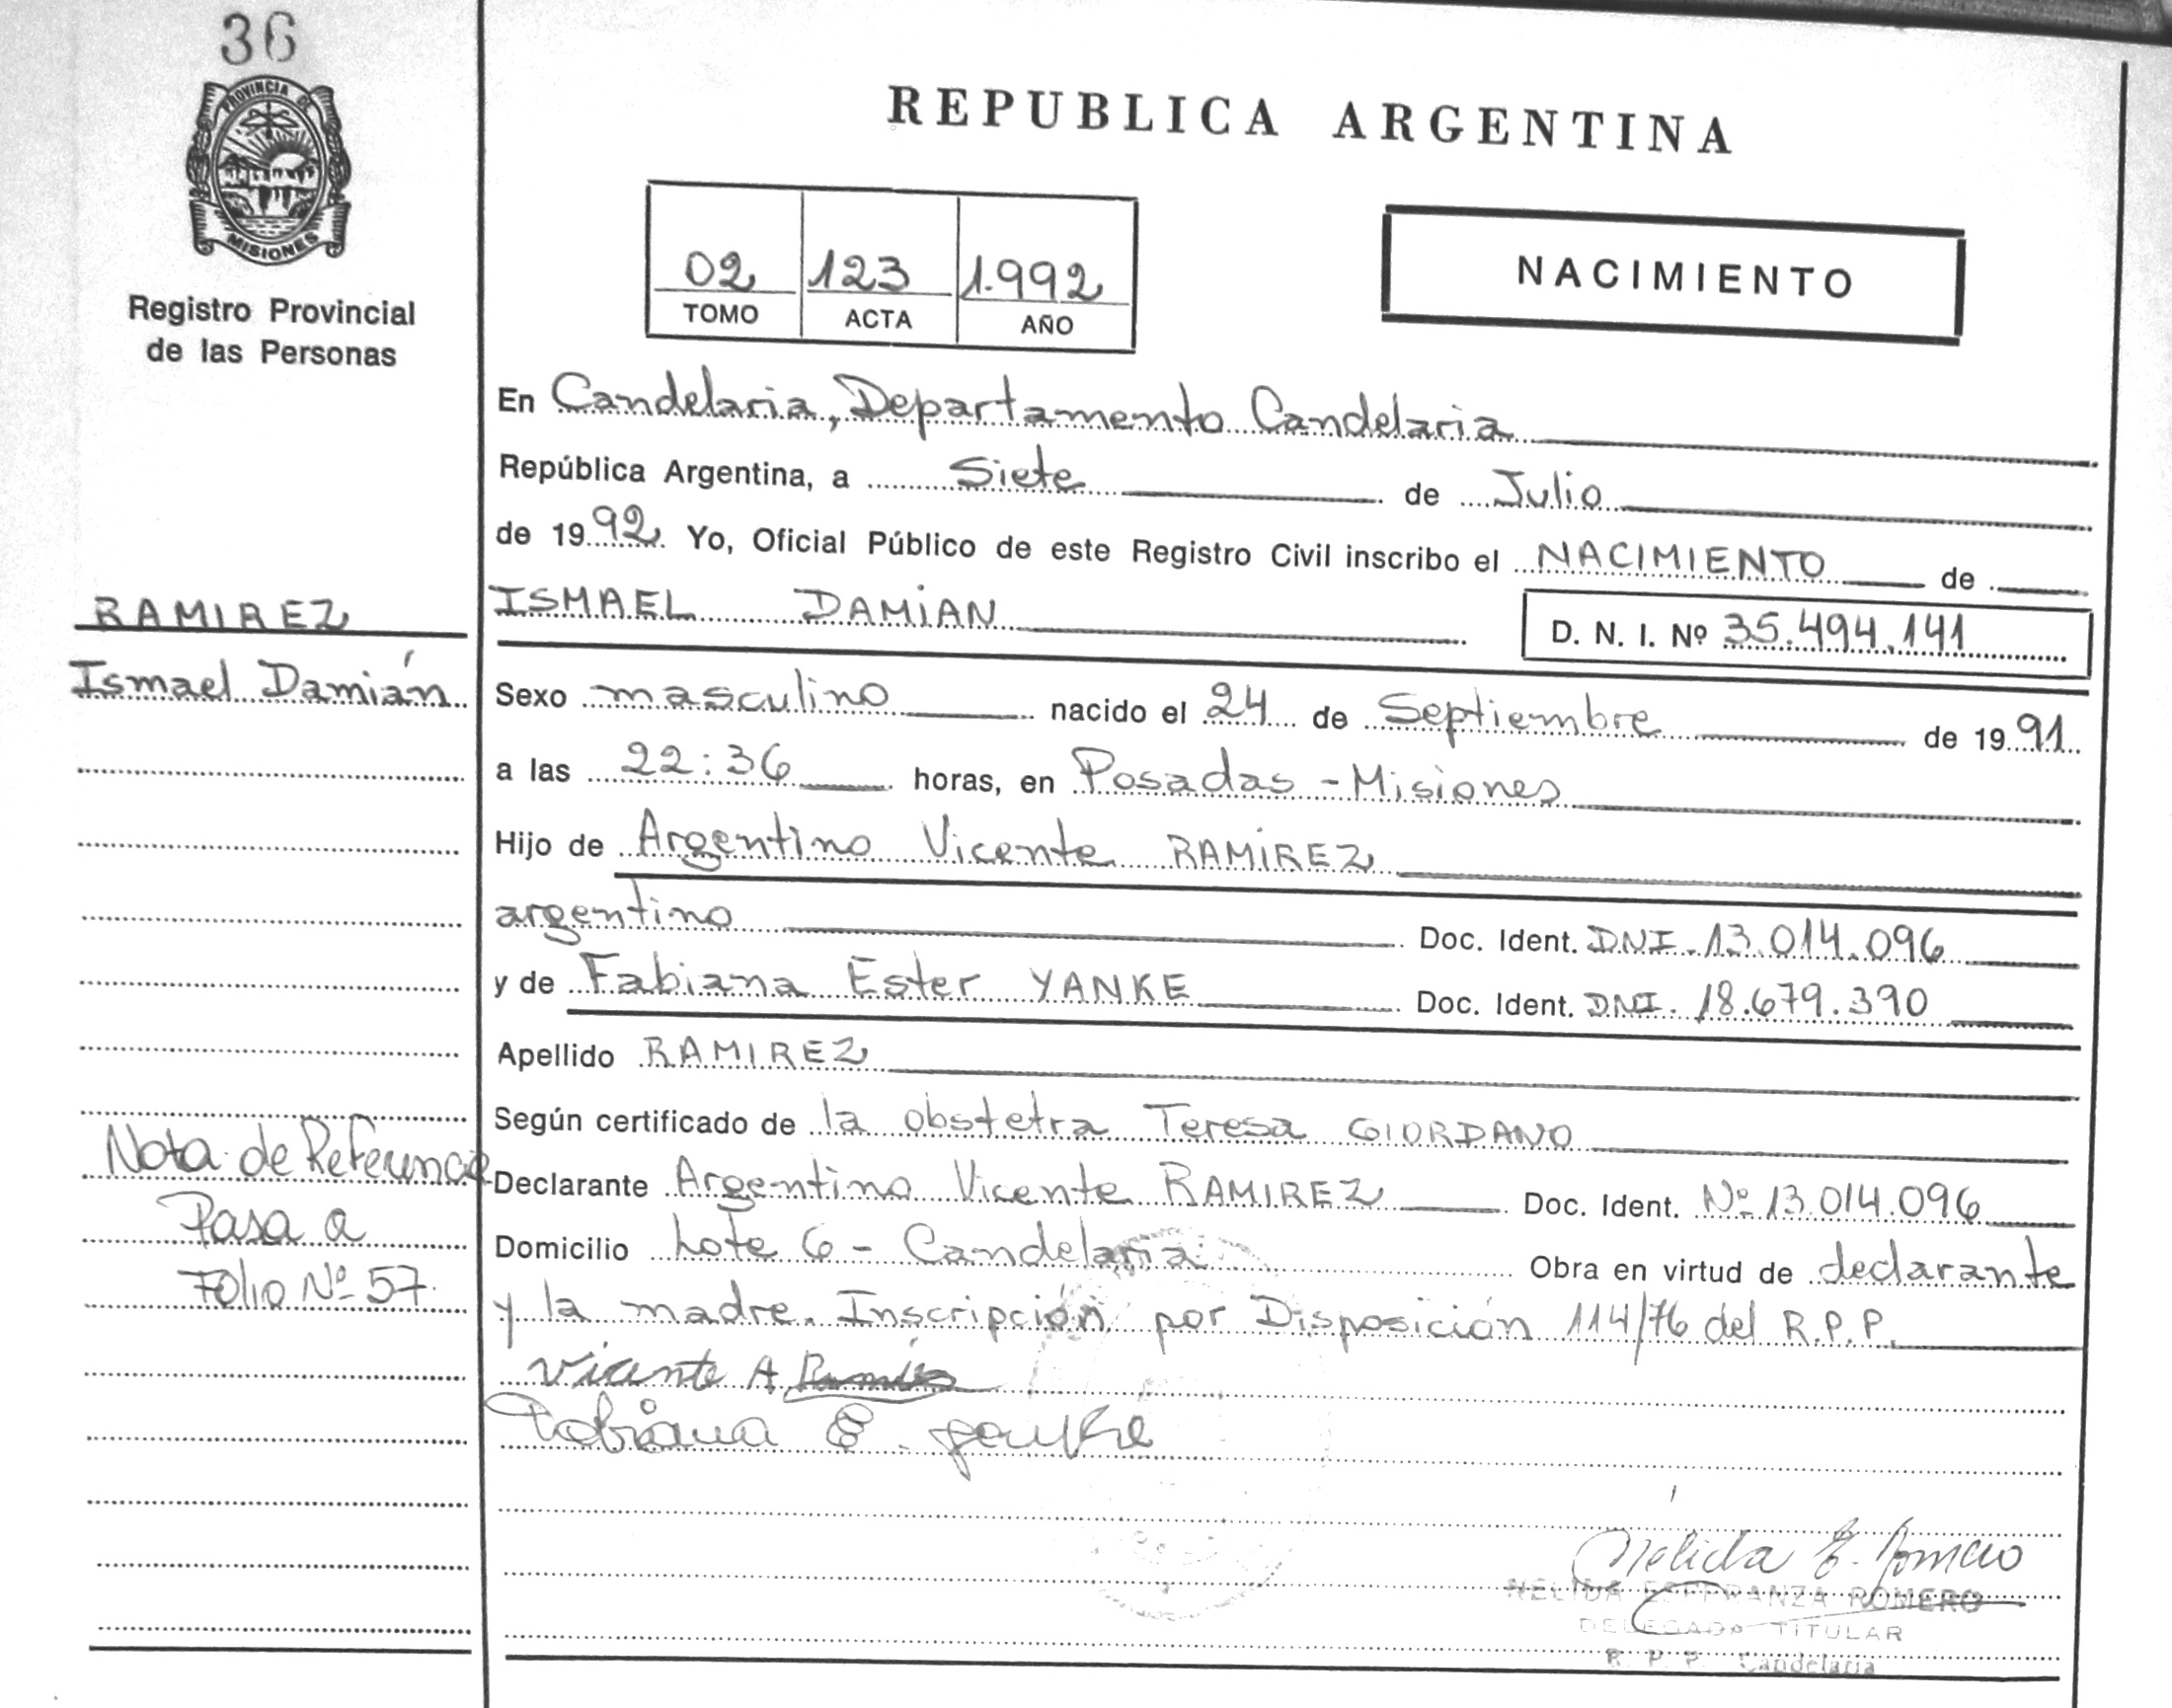 36
PROVINCIA DE
MISIONES
Registro Provincial
de las Personas
RAMIREZ
Ismael Damián
Nota de Referencia
Pasa a
Folio Nº 57.
REPUBLICA ARGENTINA
02 123 1.992
TOMO ACTA AÑO
NACIMIENTO
En Candelaria, Departamento Candelaria
República Argentina, a Siete de Julio
de 1992. Yo, Oficial Público de este Registro Civil inscribo el NACIMIENTO de
ISMAEL DAMIAN D. N. I. Nº 35.494.141
Sexo masculino nacido el 24 de Septiembre de 1991
a las 22:36 horas, en Posadas - Misiones
Hijo de Argentino Vicente RAMÍREZ
argentino Doc. Ident. DNI. 13.014.096
y de Fabiana Ester YANKE Doc. Ident. DNI. 18.679.390
Apellido RAMIREZ
Según certificado de la obstetra Teresa GIORDANO
Declarante Argentino Vicente RAMIREZ Doc. Ident. Nº 13.014.096
Domicilio Lote 6 - Candelaria Obra en virtud de declarante
y la madre. Inscripción por Disposición 114/76 del R.P.P.
Vicente A Ramírez
Fabiana E. Yanke
Nélida E. Romero
NELIDA ESPERANZA ROMERO
DELEGADO TITULAR
R. P. P. Candelaria